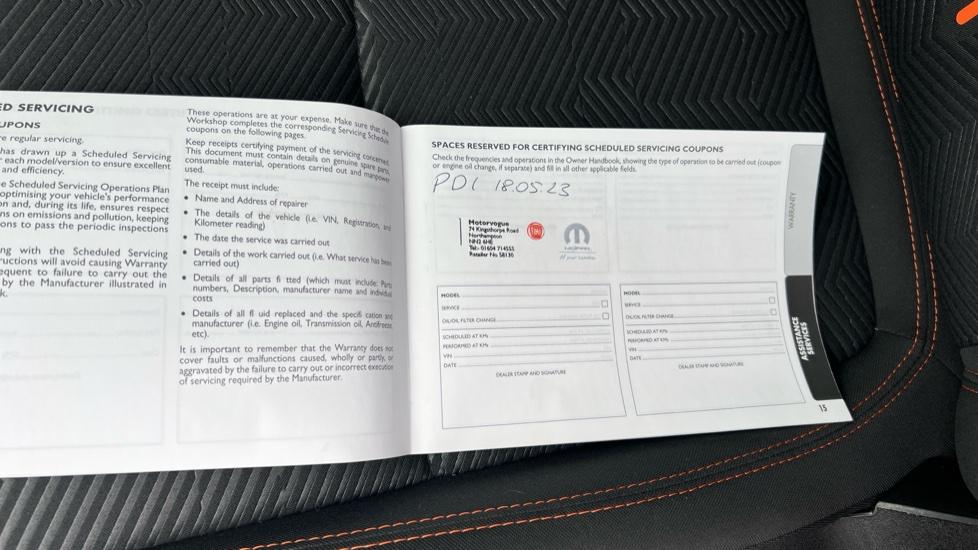 ED SERVICING
UPONS
re regular servicing.
has drawn up a Scheduled Servicing
each model/version to ensure excellent
and efficiency.
e Scheduled Servicing Operations Plan
optimising your vehicle's performance
on and, during its life, ensures respect
ns on emissions and pollution, keeping
ons to pass the periodic inspections
ng with the Scheduled Servicing
ructions will avoid causing Warranty
equent to failure to carry out the
by the Manufacturer illustrated in
k.
These operations are at your expense. Make sure that the
Workshop completes the corresponding Servicing Schedule
coupons on the following pages.
Keep receipts certifying payment of the servicing concerned.
This document must contain details on genuine spare parts,
consumable material, operations carried out and manpower
used.
The receipt must include:
• Name and Address of repairer
• The details of the vehicle (i.e. VIN, Registration, and
Kilometer reading)
• The date the service was carried out
• Details of the work carried out (i.e. What service has been
carried out)
• Details of all parts fi tted (which must include: Parts
numbers, Description, manufacturer name and individual
costs
• Details of all fl uid replaced and the specifi cation and
manufacturer (i.e. Engine oil, Transmission oil, Antifreeze
etc).
It is important to remember that the Warranty does not
cover faults or malfunctions caused, wholly or partly, or
aggravated by the failure to carry out or incorrect execution
of servicing required by the Manufacturer.
SPACES RESERVED FOR CERTIFYING SCHEDULED SERVICING COUPONS
Check the frequencies and operations in the Owner Handbook, showing the type of operation to be carried out (coupon
or engine oil change, if separate) and fill in all other applicable fields.
PDI 18.05.23
Motorvogue
74 Kingsthorpe Road
Northampton
NN2 6HE
Tel:- 01604 714555
Retailer No 58130
FIAT
MOPAR
MODEL
SERVICE
OIL/OIL FILTER CHANGE
SCHEDULED AT KMs
PERFORMED AT KMs
VIN
DATE
DEALER STAMP AND SIGNATURE
MODEL
SERVICE
OIL/OIL FILTER CHANGE
SCHEDULED AT KMs
PERFORMED AT KMs
VIN
DATE
DEALER STAMP AND SIGNATURE
WARRANTY
ASSISTANCE
SERVICES
15